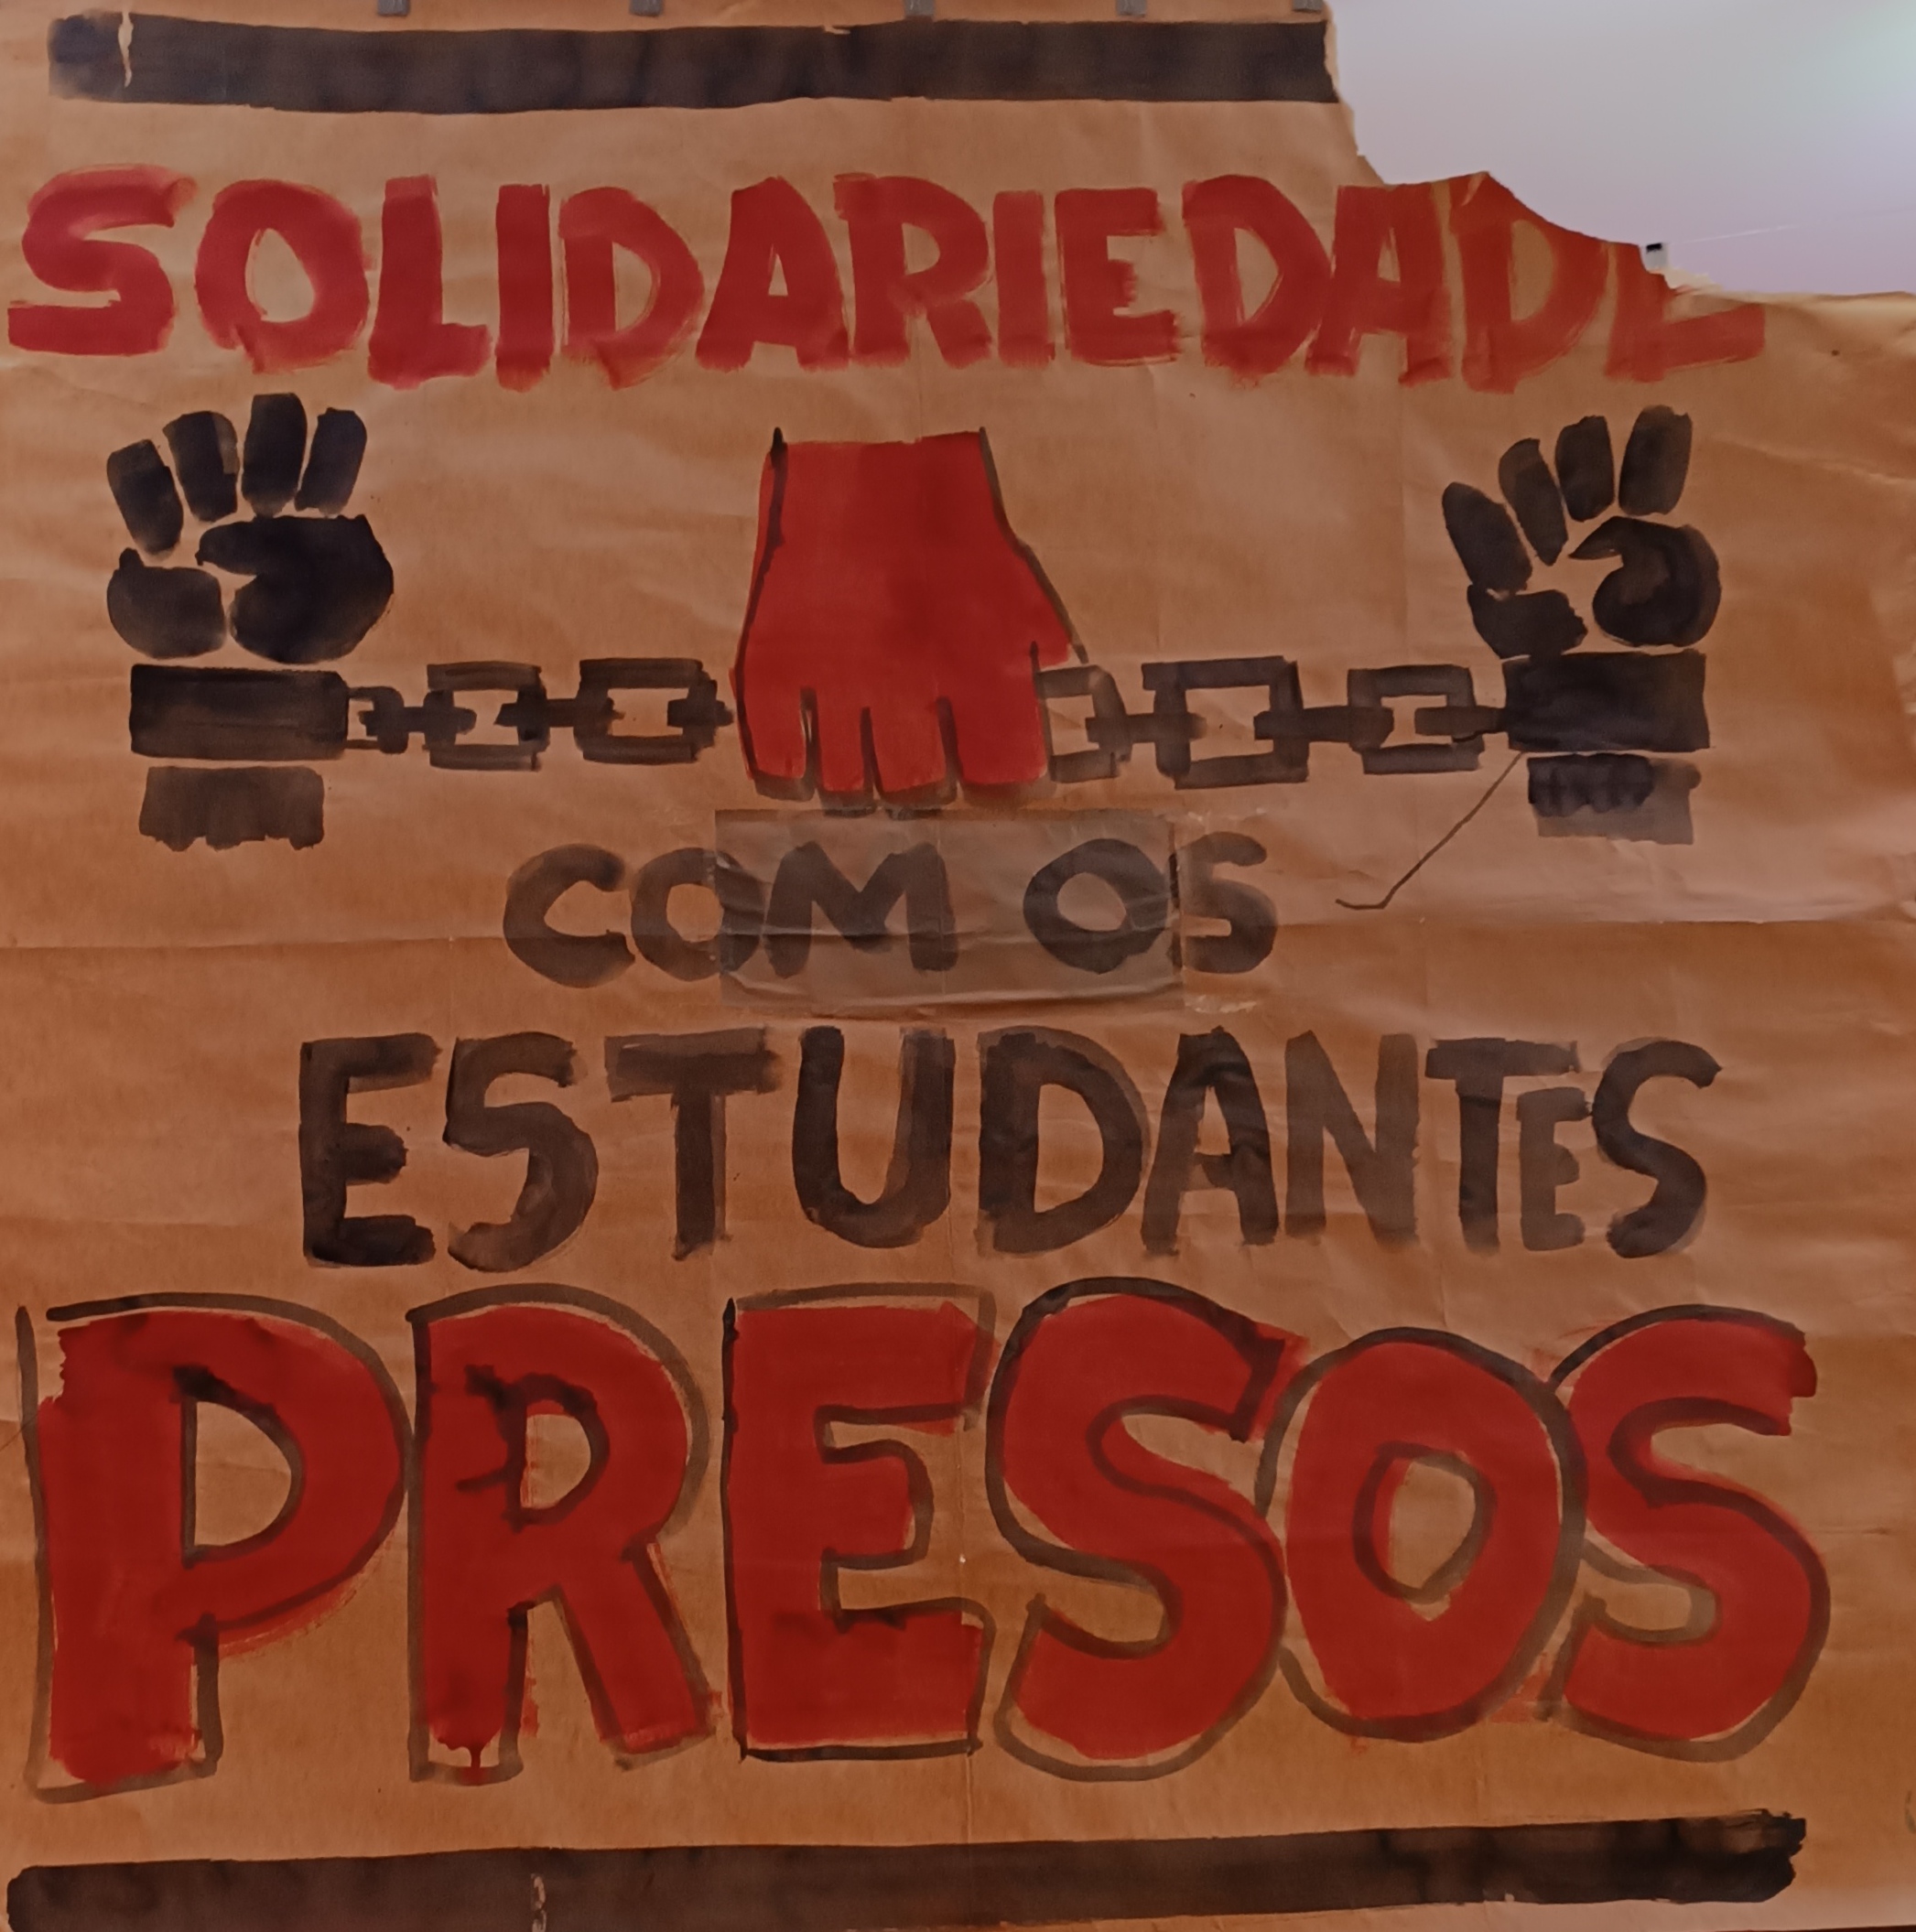 SOLIDARIEDADE
COM OS
ESTUDANTES
PRESOS